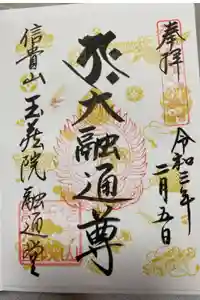 奉拝
令和三年
二月五日
大融通尊
信貴山
玉蔵院
融通堂